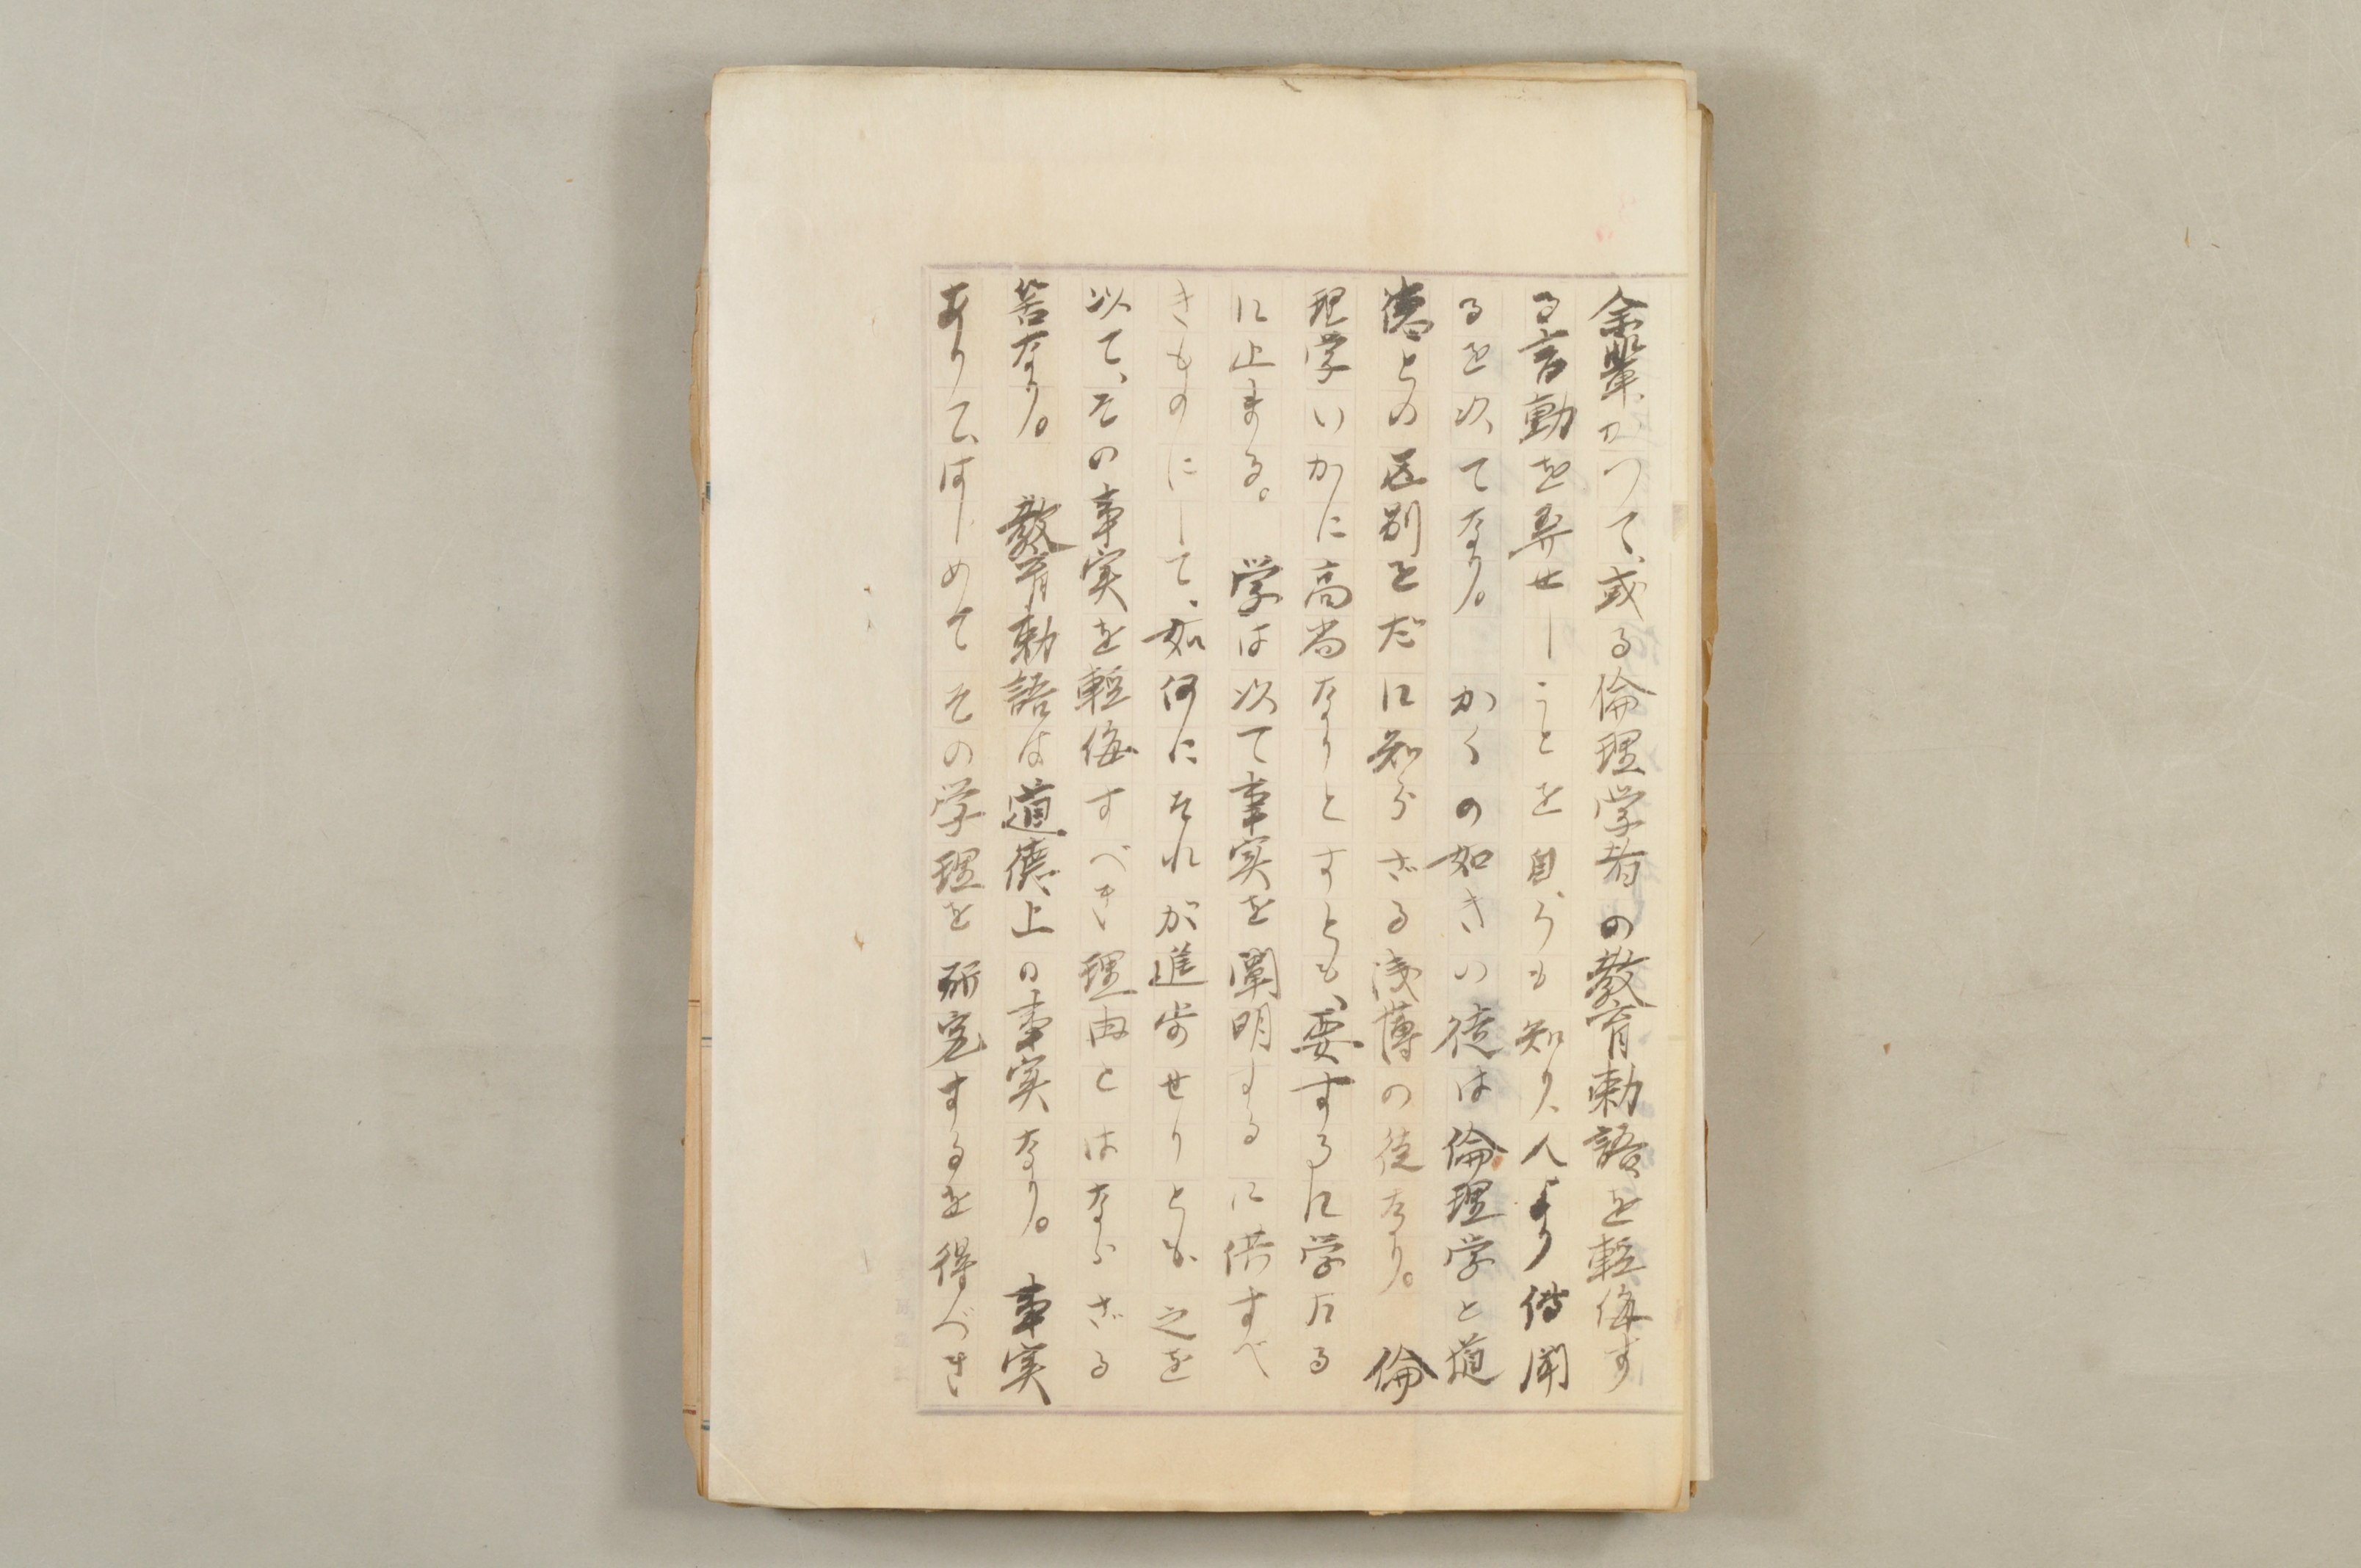 余輩かつて、或る倫理学者の教育勅語を軽侮す
る言動を弄せしことを自らも知り、人より伝聞
るを以てなり。 かくの如きの徒は倫理学と道
徳との区別をだに知らざる浅薄の徒なり。 倫
理学いかに高尚なりとすとも、要するに学たる
に止まる。 学は以て事実を闡明するに供すべ
きものにして、如何にそれが進歩せりとも之を
以て、その事実を軽侮すべき理由とはならざる
筈なり。 教育勅語は道徳上の事実なり。 事実
ありて、はじめてその学理を研究するを得べき